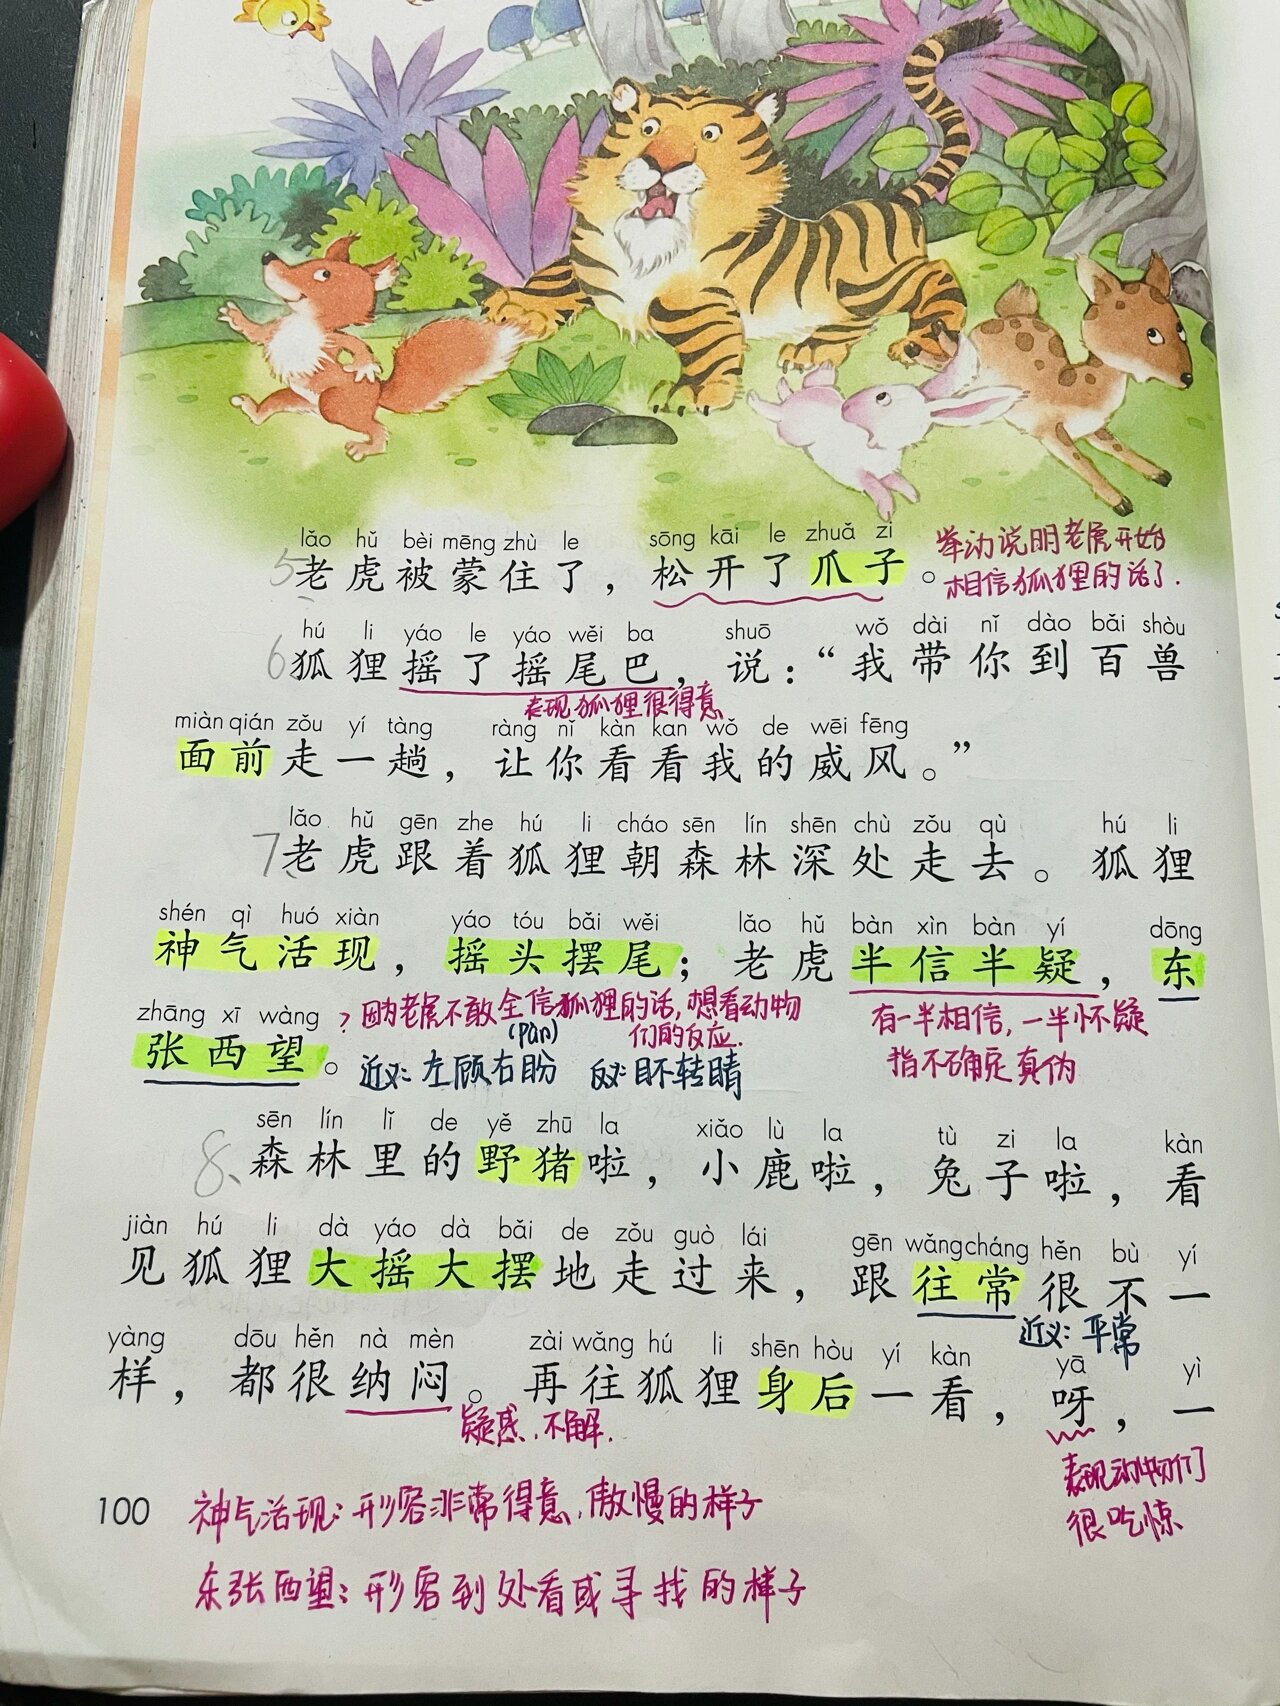 lǎo hǔ bèi méng zhù le sōng kāi le zhuǎ zi
5 老虎被蒙住了，松开了爪子。
举动说明老虎开始
相信狐狸的话了.
hú li yáo le yáo wěi ba shuō wǒ dài nǐ dào bǎi shòu
6 狐狸摇了摇尾巴，说：“我带你到百兽
表现狐狸很得意
miàn qián zǒu yí tàng ràng nǐ kàn kan wǒ de wēi fēng
面前走一趟，让你看看我的威风。”
lǎo hǔ gēn zhe hú li cháo sēn lín shēn chù zǒu qù hú li
7、老虎跟着狐狸朝森林深处走去。狐狸
shén qì huó xiàn yáo tóu bǎi wěi lǎo hǔ bàn xìn bàn yí dōng
神气活现，摇头摆尾；老虎半信半疑，东
zhāng xī wàng
张西望。
? 因为老虎不敢全信狐狸的话,想看动物
们的反应.
有一半相信,一半怀疑
指不确定真伪
(pàn)
近义: 左顾右盼 反义: 目不转睛
sēn lín lǐ de yě zhū la xiǎo lù la tù zi la kàn
8、森林里的野猪啦，小鹿啦，兔子啦，看
jiàn hú li dà yáo dà bǎi de zǒu guò lái gēn wǎng cháng hěn bù yí
见狐狸大摇大摆地走过来，跟往常很不一
近义: 平常
yàng dōu hěn nà mèn zài wǎng hú li shēn hòu yí kàn yā yì
样，都很纳闷。再往狐狸身后一看，呀，一
疑惑、不解.
表现动物们
很吃惊
100
神气活现: 形容非常得意、傲慢的样子
东张西望: 形容到处看或寻找的样子